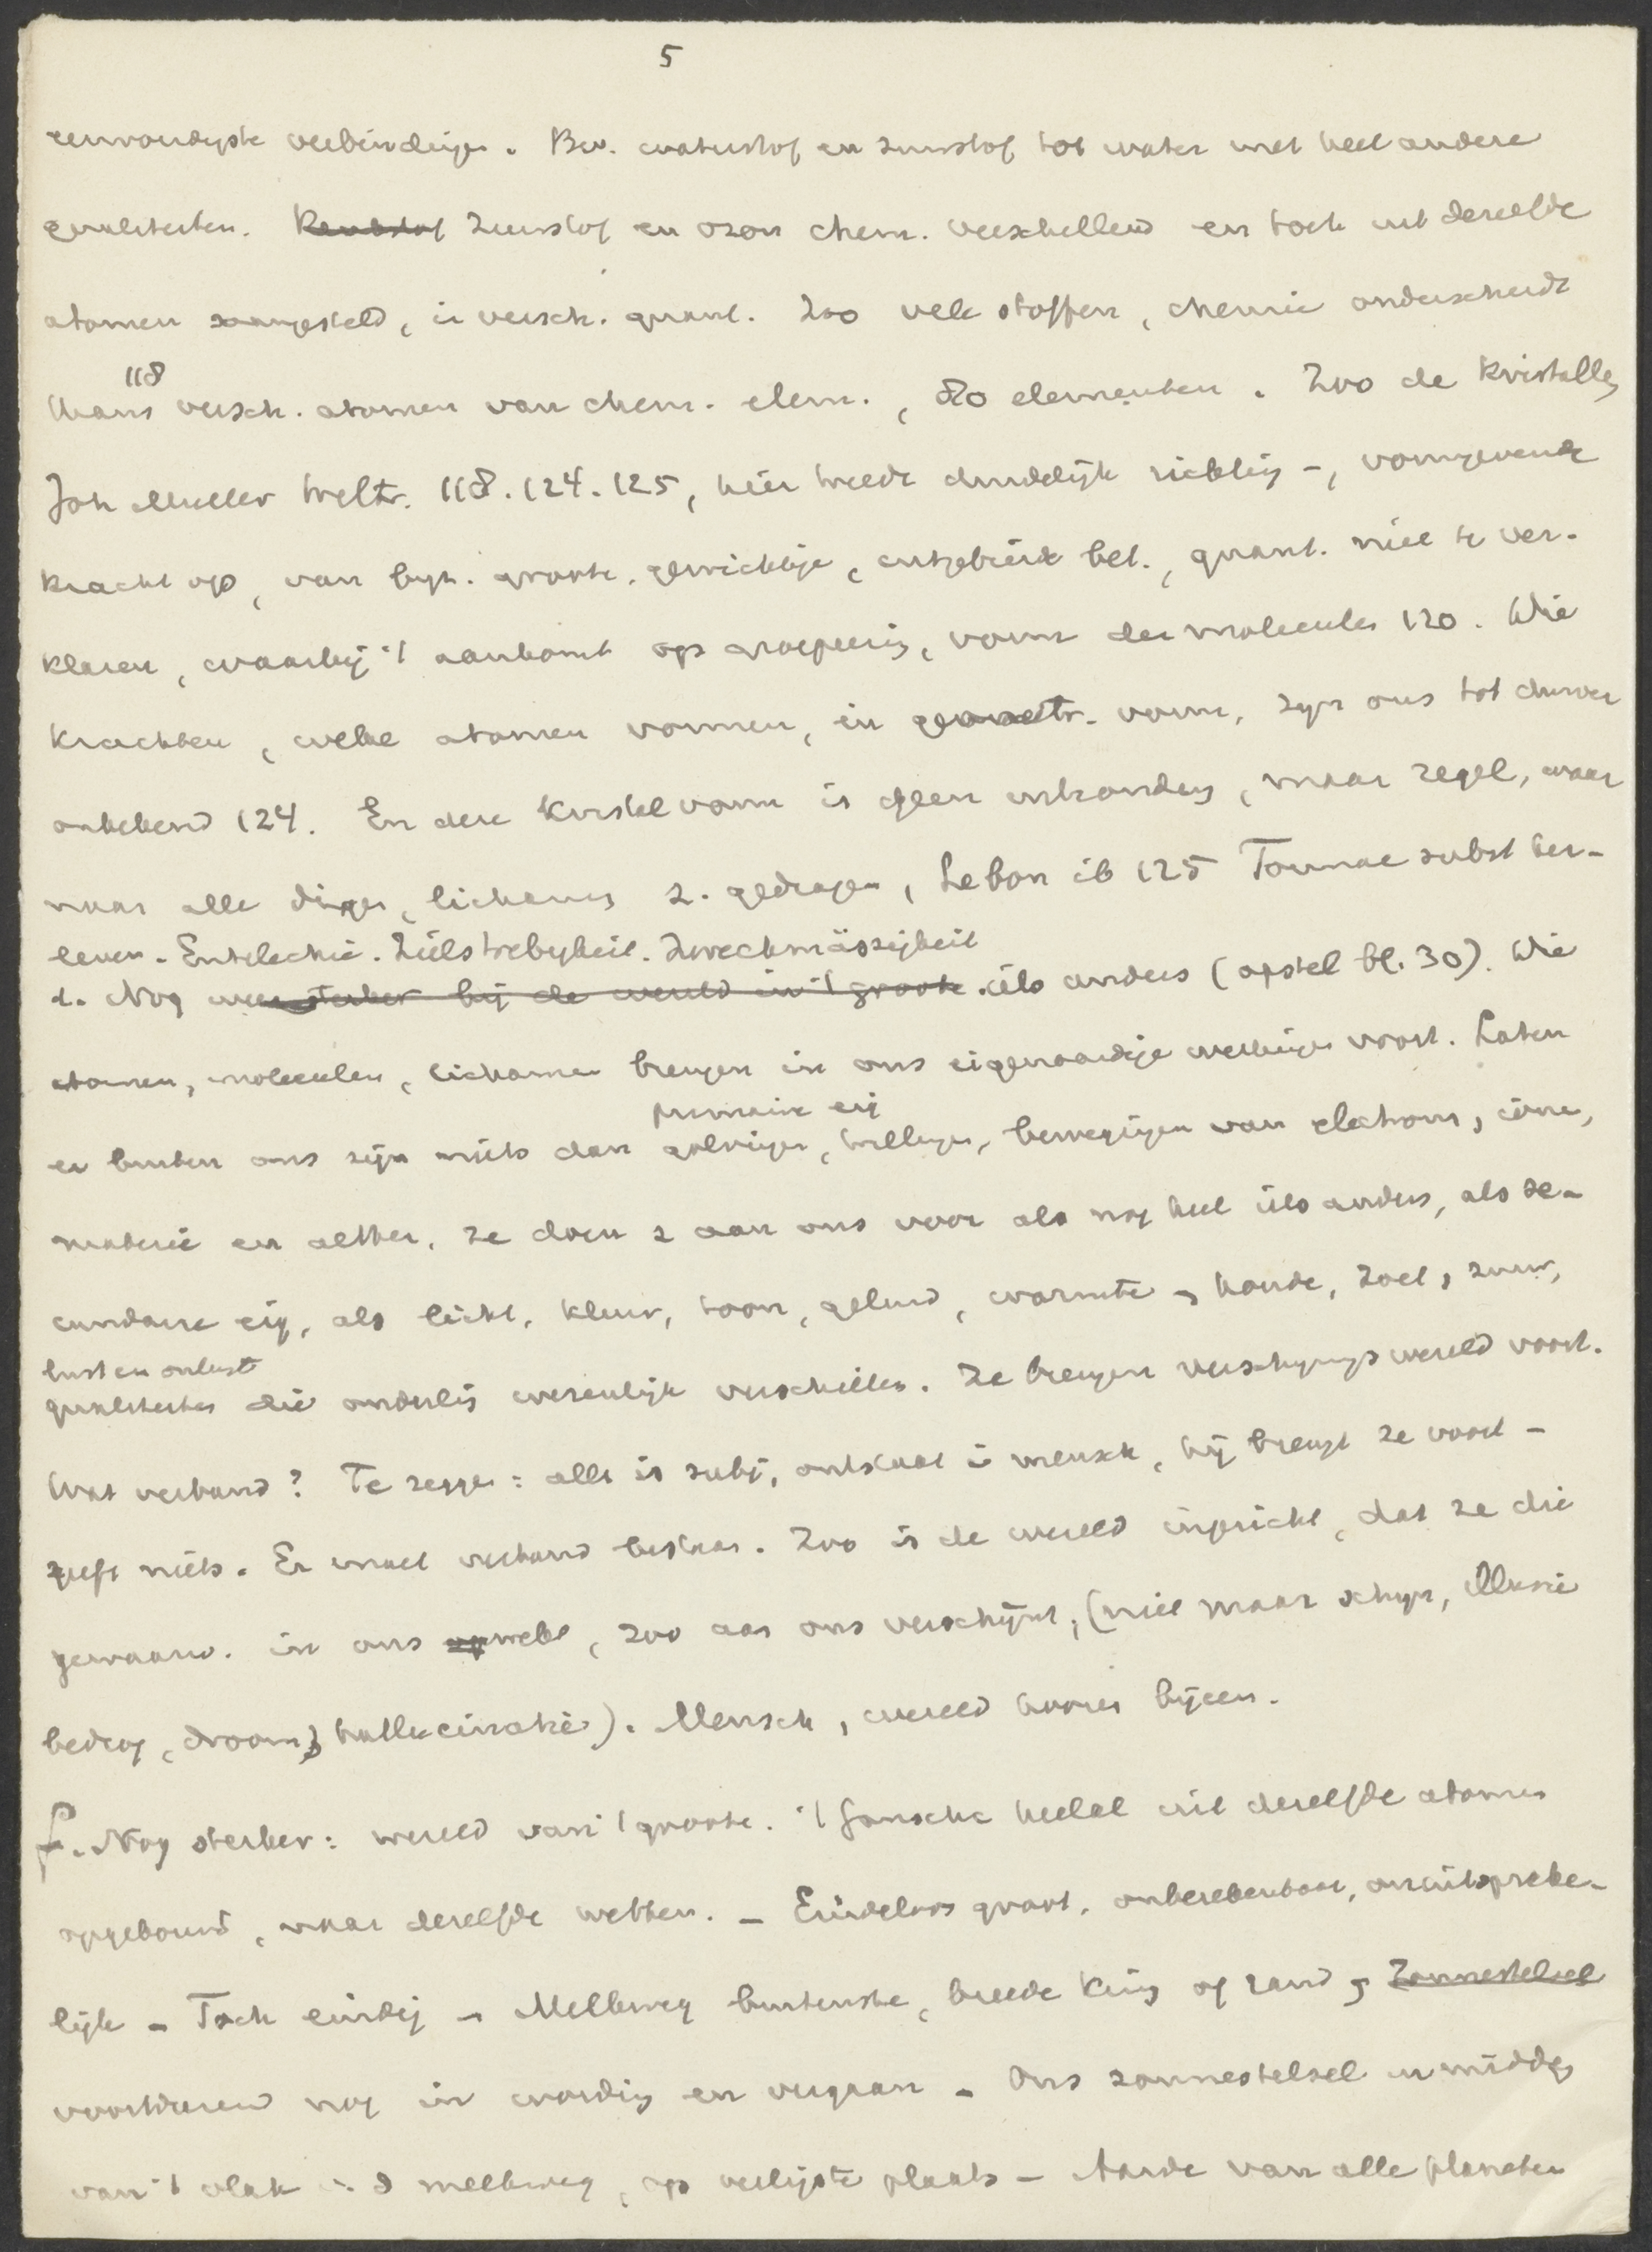 5
eenvoudigste verbindingen. Bv. waterstof en zuurstof tot water met heel andere
qualiteiten. Zuurstof en ozon chem. verschillend en toch uit dezelfde
atomen saamgesteld, in versch. quant. Zoo vele stoffen, chemie onderscheidt
118
thans versch. atomen van chem. elem., 80 elementen. Zoo de kristallen
Joh Muller Weltr. 118. 124. 125, hier treedt duidelijk richting -, vormgevende
kracht op, van byz. groote gewichtige, uitgebreide bet., quant. niet te ver-
klaren, waarbij 't aankomt op groepeering, vorm der moleculen 120. Wie
krachten, welke atomen vormen, in geometr. vorm, zyn ons tot dusver
onbekend 124. En deze kristalvorm is geen uitzondering, maar regel, waar
naar alle dingen, lichamen z. gedragen, Lebon ib 125 Tournae subst her-
leven. Entelechie. Zielstrebigkeit. Zweckmässigkeit
d. Nog weer sterker bij de wereld in 't groote. iets anders (opstel bl. 30). Wie
atomen, moleculen, lichamen brengen in ons eigenaardige werkingen voort. Laten
primaire eig
er buiten ons zijn niets dan golvingen, trillingen, bewegingen van electrons, ionen,
materie en aether, ze doen z aan ons voor als nog heel iets anders, als se-
cundaire eig, als licht, kleur, toon, geluid, warmte, koude, zoet, zuur,
lust en onlust
qualiteiten die onderling wezenlijk verschillen. Ze brengen verschyningswereld voort.
Wat verband? Te zeggen: alles is subj, ontstaat in mensch, hij brengt ze voort -
geeft niets. Er moet verband bestaan. Zoo is de wereld ingericht, dat ze die
gewaarw. in ons wekt, zoo aan ons verschijnt, (niet maar schyn, illusie
bedrog, droom, hallucinatie). Mensch, wereld hooren bijeen.
f. Nog sterker: wereld van 't groote. 't Gansche heelal uit dezelfde atomen
opgebouwd, naar dezelfde wetten. - Eindeloos groot, onberekenbaar, onuitspreke-
lijk - Toch eindig - Melkweg buitenste, breede kring of rand, Zonnestelsel
voortdurend nog in wording en vergaan - Ons zonnestelsel in midden
van 't vlak i. d melkweg, op veiligste plaats - Aarde van alle planeten